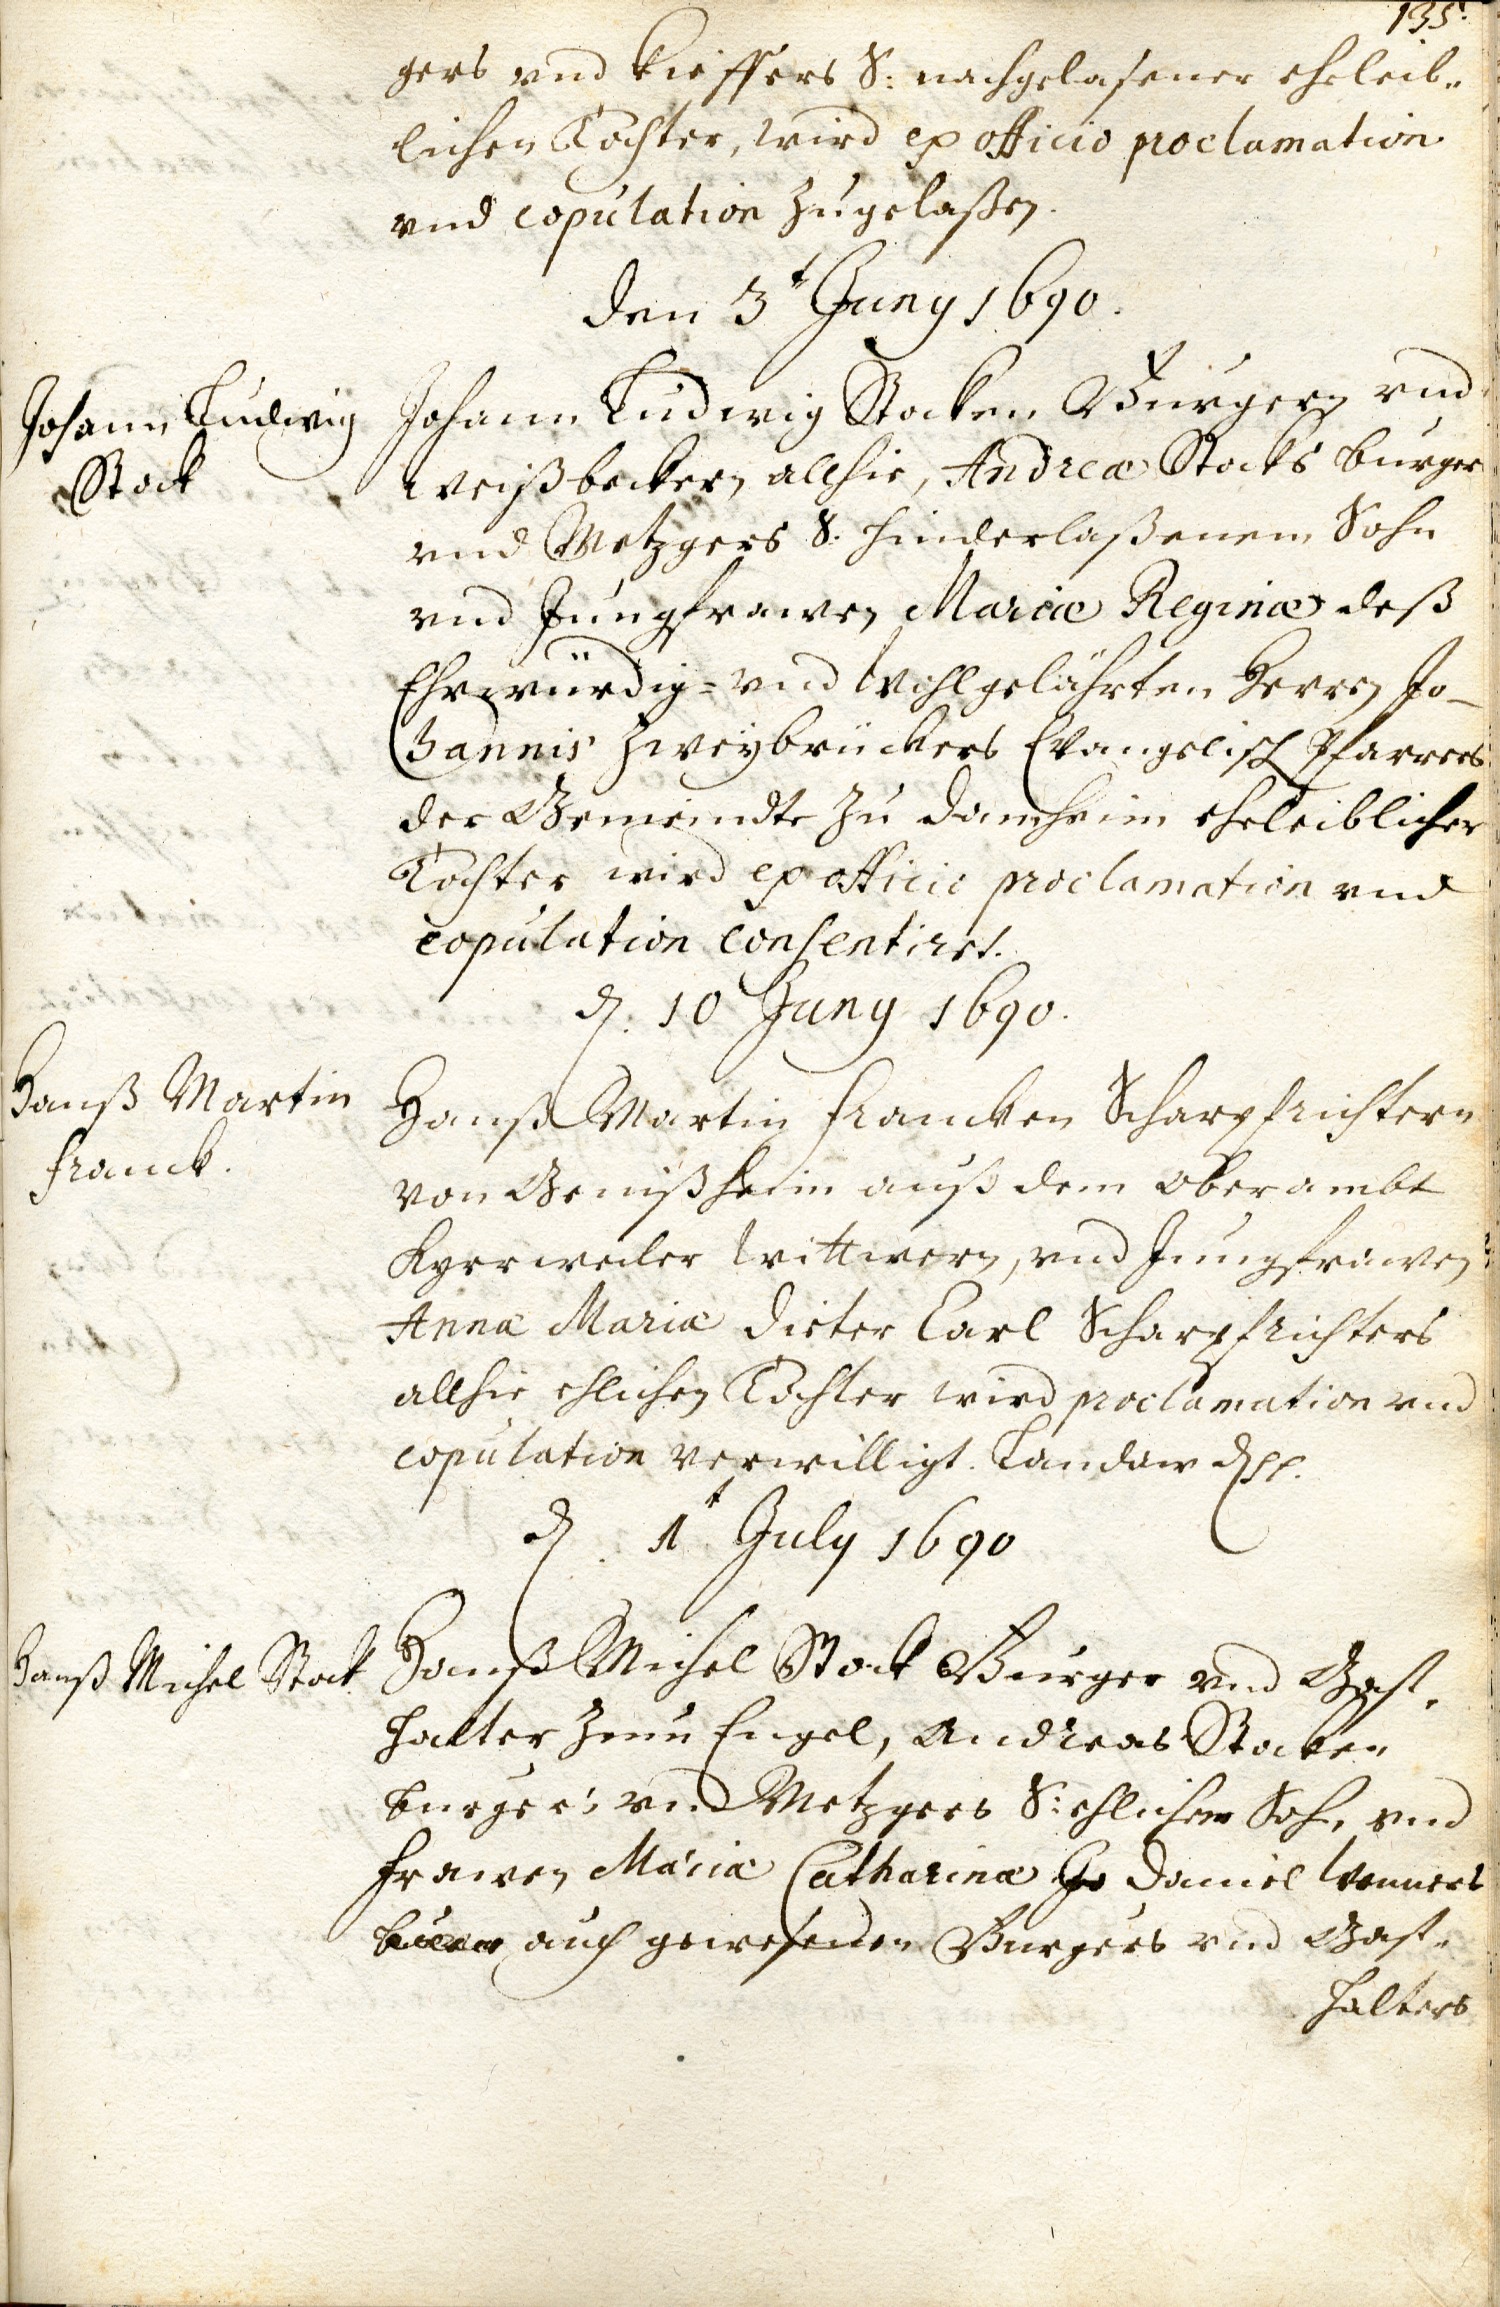 135.
gers vnd Kieffers S: nachgelasener eheleib-
lichen Tochter, wird ex officio proclamation
vnd copulation zugelaßen.
den 3t Juny 1690.
Johann Ludwig
Stock
Johann Ludwig Stocken Burgern vnd
weißbeckern allhie, Andreæ Stocks burger
vnd Metzgers S. hinderlaßenem Sohn
vnd Jungfrawen Mariæ Reginæ deß
Ehrwürdig- vnd Wohlgelährten Herrn Jo-
hannis Zweybrückers Evangelisch Pfarrers
der Gemeindte zu Damheim eheleiblicher
Tochter wird ex officio proclamation vnd
copulation consentiret.
d. 10 Juny 1690.
Hanß Martin
Franck.
Hanß Martin Francken Scharpfrichtern
von Venißheim auß dem Oberambt
Kyrweiler Wittwern, vnd Jungfrawen
Annæ Mariæ Dieter Carl Scharpfrichters
allhie ehlichen Tochter wird proclamation vnd
copulation verwilligt. Landaw
d. 1t July 1690
Hanß Michel Stock
Hanß Michel Stock Burger vnd Gast-
halter zum Engel, Andreas Stocken
burgers vnd Metzgers S: ehlichem Sohn vnd
Frawen Mariæ Catharinæ Jo Daniel
auch gewesenen Burgers vnd Gast-
halters